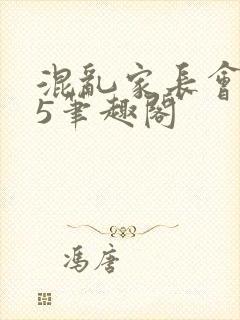 混亂家長會
5筆趣閣
馮唐